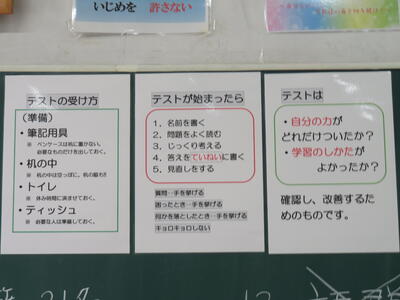 いじめを 許さない
テストの受け方
（準備）
・筆記用具
※ ペンケースは机に置かない。
必要なものだけを出しておく。
・机の中
※ 机の中は空っぽに。机の脇も！
・トイレ
※ 休み時間に済ませておく。
・ティッシュ
※ 必要な人は準備しておく。
テストが始まったら
1. 名前を書く
2. 問題をよく読む
3. じっくり考える
4. 答えをていねいに書く
5. 見直しをする
質問…手を挙げる
困ったとき…手を挙げる
何かを落としたとき…手を挙げる
キョロキョロしない
テストは
・自分の力が
どれだけついたか？
・学習のしかたが
よかったか？
確認し、改善するた
めのものです。